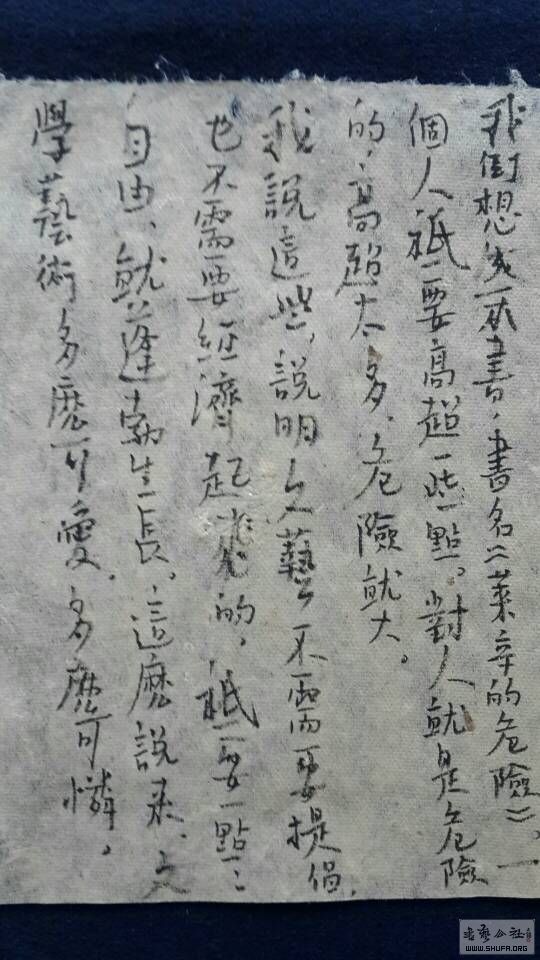 我倒想成一本書,書名《萊辛的危險》。一
個人祇要高超一些點。對人就是危險
的,高超太多,危險就大。
我說這些,說明文藝不需要提倡,
也不需要經濟起飛的,祇要一點
自由,就蓬勃生長。這麼說來,文
學藝術多麼可愛,多麼可憐。
WWW.SHUFA.ORG